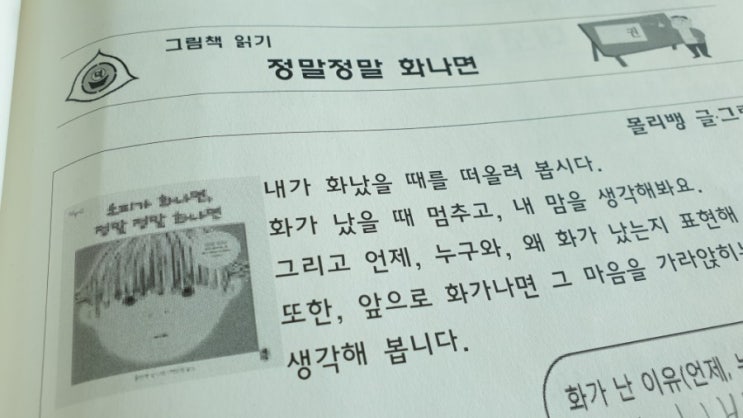 그림책 읽기
정말정말 화나면
권
몰리뱅 글·그
내가 화났을 때를 떠올려 봅시다.
화가 났을 때 멈추고, 내 맘을 생각해봐요.
그리고 언제, 누구와, 왜 화가 났는지 표현해
또한, 앞으로 화가나면 그 마음을 가라앉히는
생각해 봅니다.
소피가 화나면,
정말 정말 화나면
화가 난 이유(언제, 누